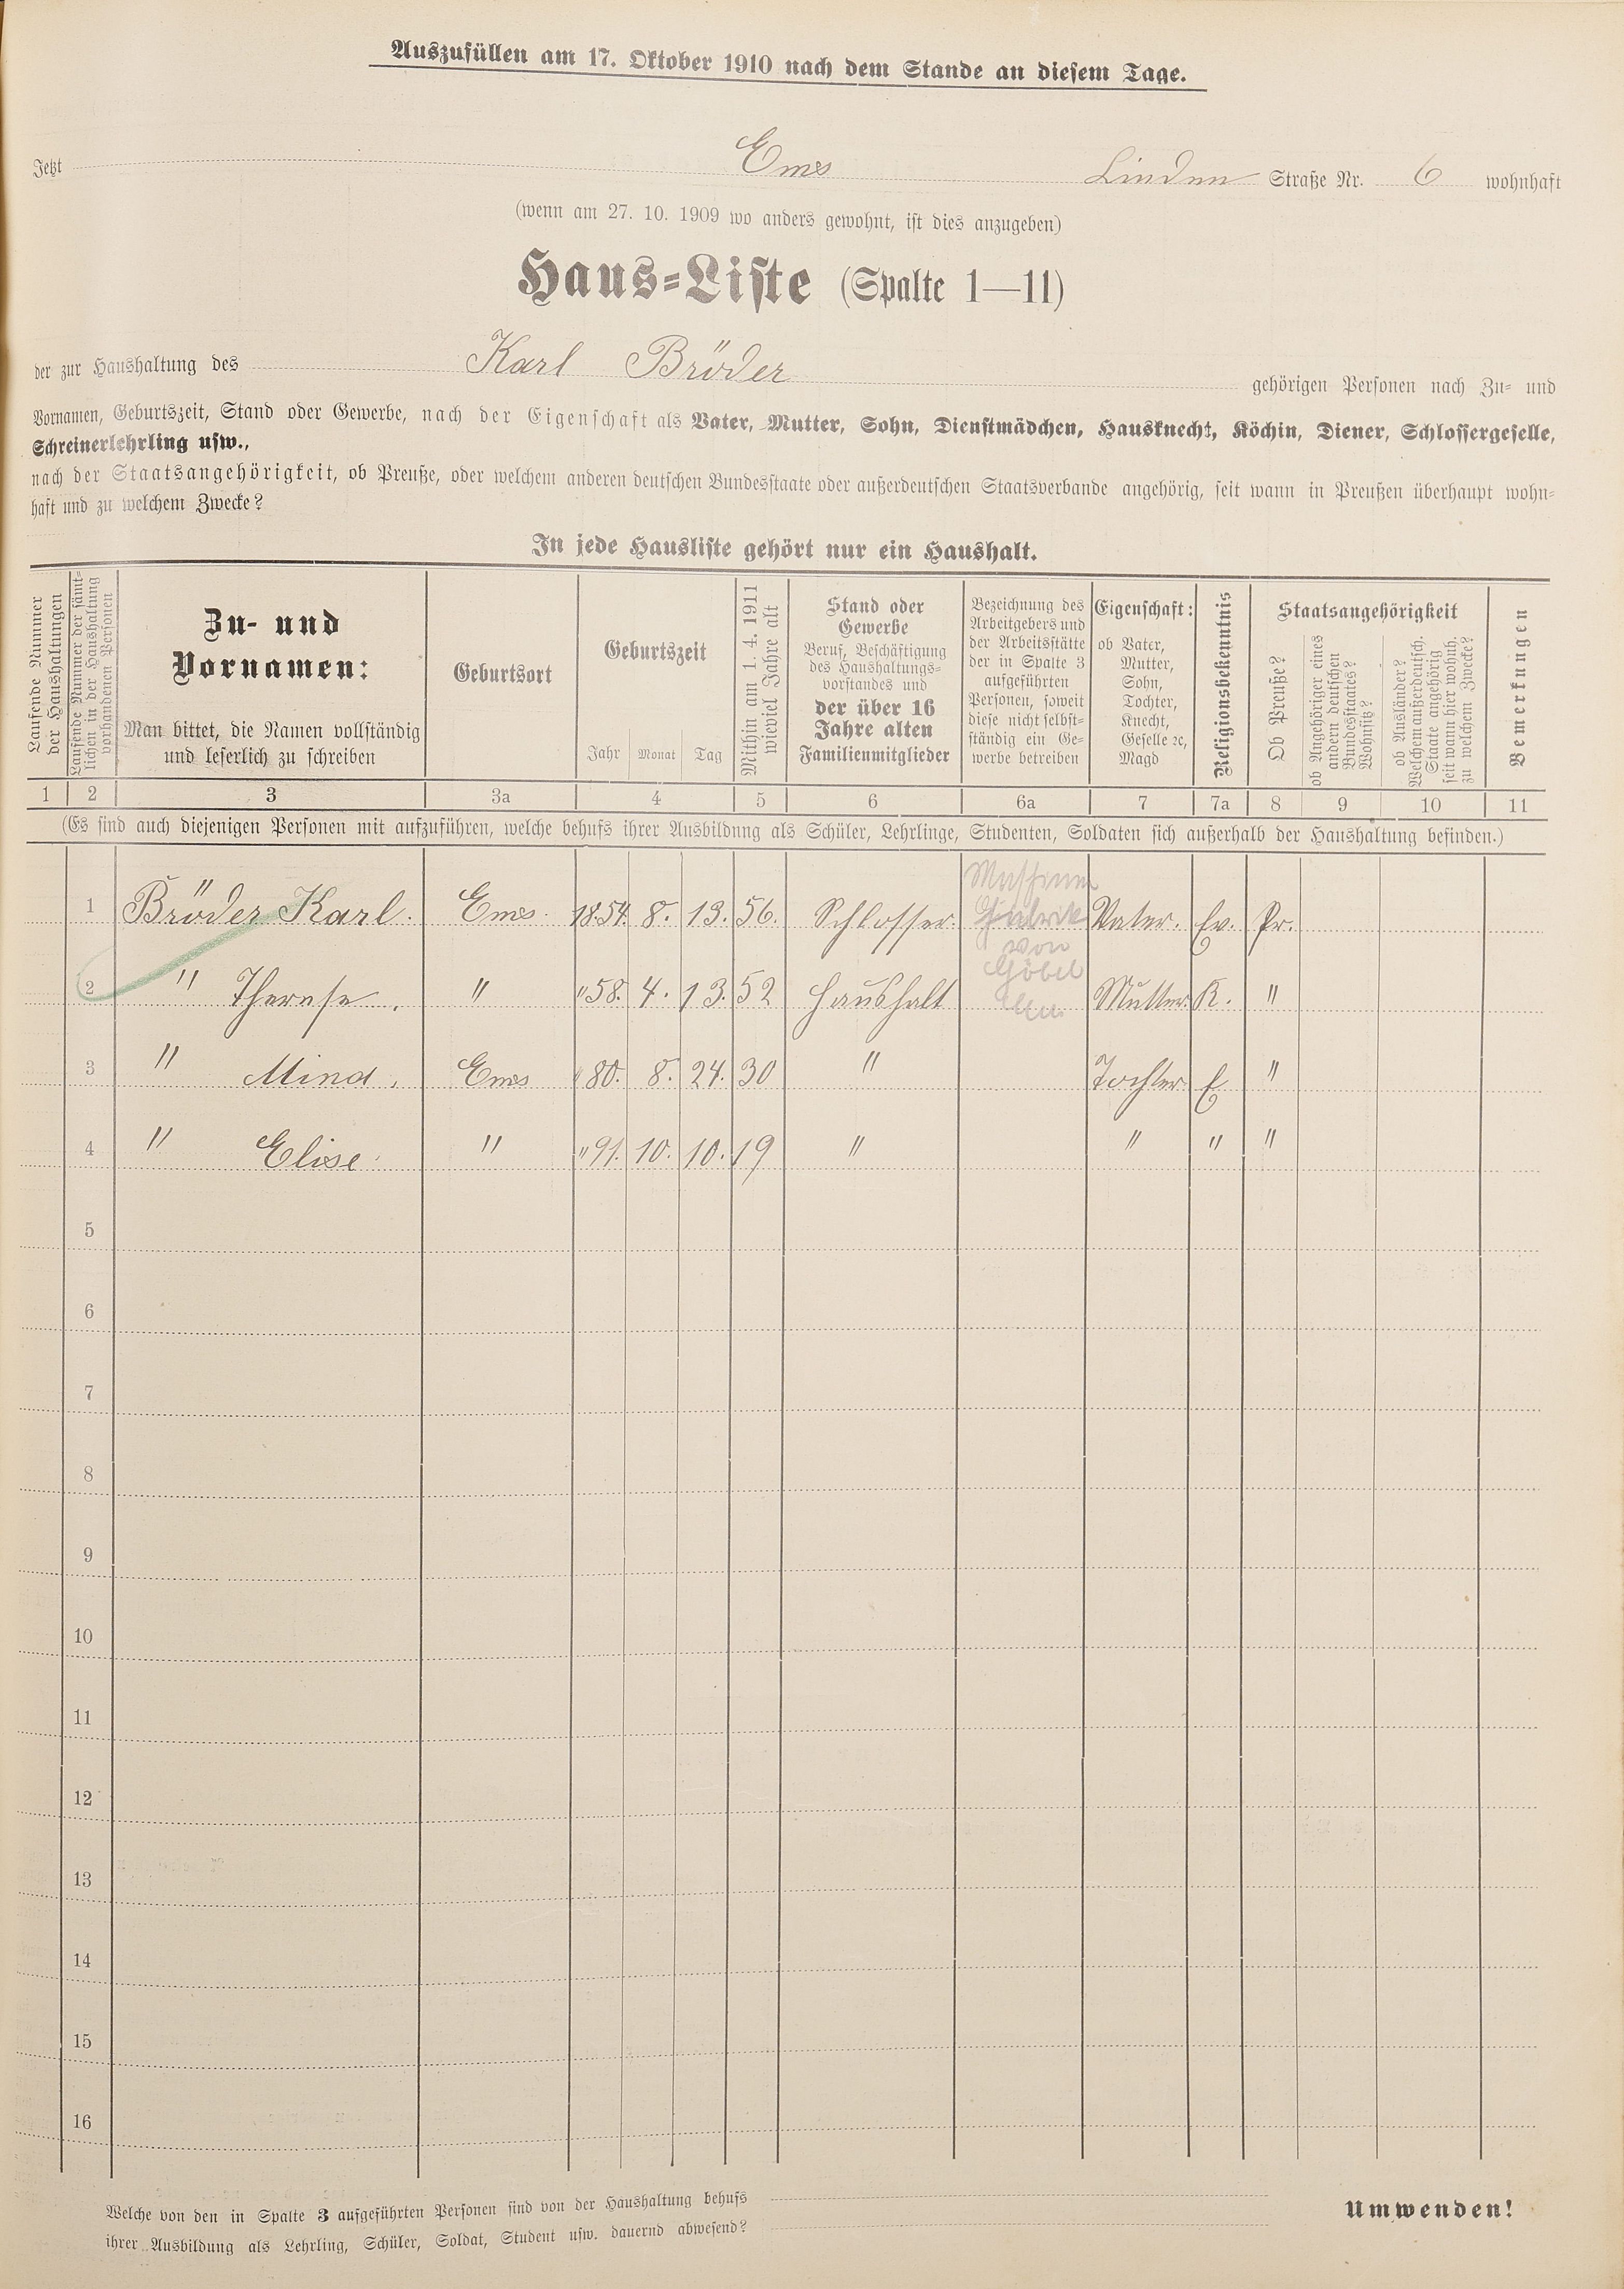 Auszufüllen am 17. Oktober 1910 nach dem Stande an diesem Tage.
Jetzt Ems Linden Straße Nr. 6 wohnhaft
(wenn am 27. 10. 1909 wo anders gewohnt, ist dies anzugeben)
Haus-Liste (Spalte 1—11)
der zur Haushaltung des Karl Bröder gehörigen Personen nach Zu- und
Vornamen, Geburtszeit, Stand oder Gewerbe, nach der Eigenschaft als Vater, Mutter, Sohn, Dienstmädchen, Hausknecht, Köchin, Diener, Schlossergeselle,
Schreinerlehrling usw.,
nach der Staatsangehörigkeit, ob Preuße, oder welchem anderen deutschen Bundesstaate oder außerdeutschen Staatsverbande angehörig, seit wann in Preußen überhaupt wohn-
haft und zu welchem Zwecke?
In jede Hausliste gehört nur ein Haushalt.
Laufende Nummer
der Haushaltungen
Laufende Nummer der sämt-
lichen in der Haushaltung
vorhandenen Personen
Zu- und
Vornamen:
Man bittet, die Namen vollständig
und leserlich zu schreiben
Geburtsort
Geburtszeit
Jahr Monat Tag
Mithin am 1. 4. 1911
wieviel Jahre alt
Stand oder
Gewerbe
Beruf, Beschäftigung
des Haushaltungs-
vorstandes und
der über 16
Jahre alten
Familienmitglieder
Bezeichnung des
Arbeitgebers und
der Arbeitsstätte
der in Spalte 3
aufgeführten
Personen, soweit
diese nicht selbst-
ständig ein Ge-
werbe betreiben
Eigenschaft:
ob Vater,
Mutter,
Sohn,
Tochter,
Knecht,
Geselle ꝛc,
Magd
Religionsbekenntnis
Staatsangehörigkeit
Ob Preuße?
ob Angehöriger eines
andern deutschen
Bundesstaates?
Wohnsitz?
ob Ausländer?
Welchem außerdeutsch.
Staate angehörig
seit wann hier wohnh.
zu welchem Zwecke?
Bemerkungen
1 2 3 3a 4 5 6 6a 7 7a 8 9 10 11
(Es sind auch diejenigen Personen mit aufzuführen, welche behufs ihrer Ausbildung als Schüler, Lehrlinge, Studenten, Soldaten sich außerhalb der Haushaltung befinden.)
1 Bröder Karl. Ems. 1854. 8. 13. 56. Schlosser. Vater. Ev. Pr.
von
Göbel
2 " Therese. " " 58. 4. 13. 52 Haushalt Mutter. K. "
3 " Mina. Ems " 80. 8. 24. 30 " Tochter E "
4 " Elise. " " 91. 10. 10. 19 " " " "
5
6
7
8
9
10
11
12
13
14
15
16
Welche von den in Spalte 3 aufgeführten Personen sind von der Haushaltung behufs
ihrer Ausbildung als Lehrling, Schüler, Soldat, Student usw. dauernd abwesend?
Umwenden!